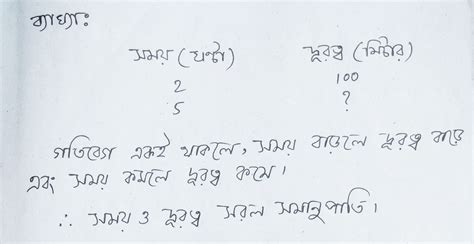 ব্যাখ্যাঃ
সময় (ঘণ্টা) দূরত্ব (মিটার)
2 100
5 ?
গতিবেগ একই থাকলে, সময় বাড়লে দূরত্ব বাড়ে
এবং সময় কমলে দূরত্ব কমে।
∴ সময় ও দূরত্ব সরল সমানুপাতি।